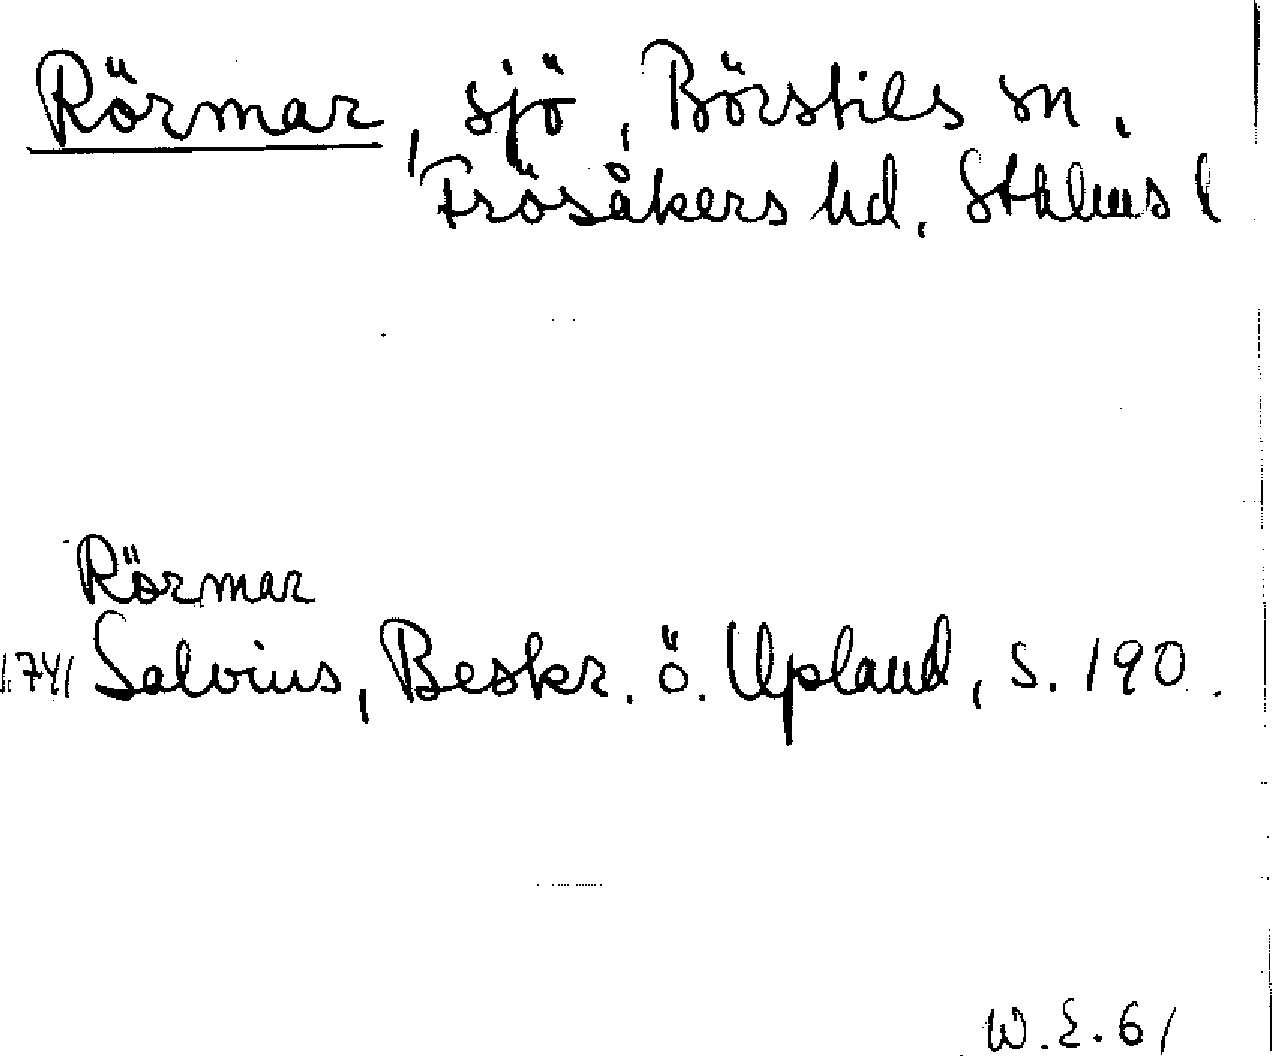 Rörmar, sjö, Börstils sn,
Frösåkers hd, Sthlms l
Rörmar
1741 Salvius, Beskr. ö. Upland, s. 190.
W.E. 61